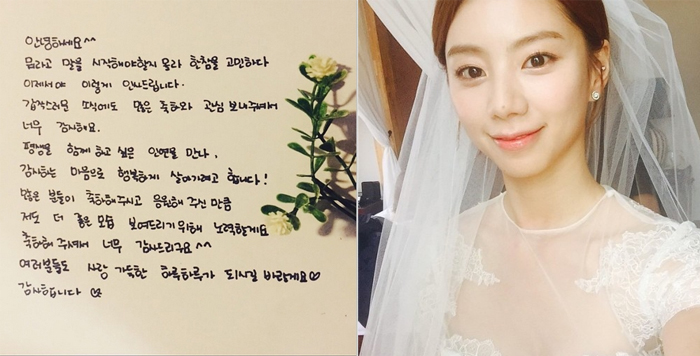 안녕하세요^^
뭐라고 말을 시작해야할지 몰라 한참을 고민하다
이제서야 이렇게 인사드립니다.
갑작스러운 소식에도 많은 축하와 관심 보내주셔서
너무 감사해요.
평생을 함께 하고 싶은 인연을 만나,
감사하는 마음으로 행복하게 살아가려고 합니다!
많은 분들이 축하해주시고 응원해 주신 만큼
저도 더 좋은 모습 보여드리기위해 노력할게요
축하해 주셔서 너무 감사드리구요^^
여러분들도 사랑 가득한 하루하루가 되시길 바랄게요♡
감사합니다 ♡